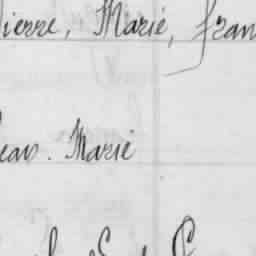 Pierre, Marie, Fran
Jean. Marie